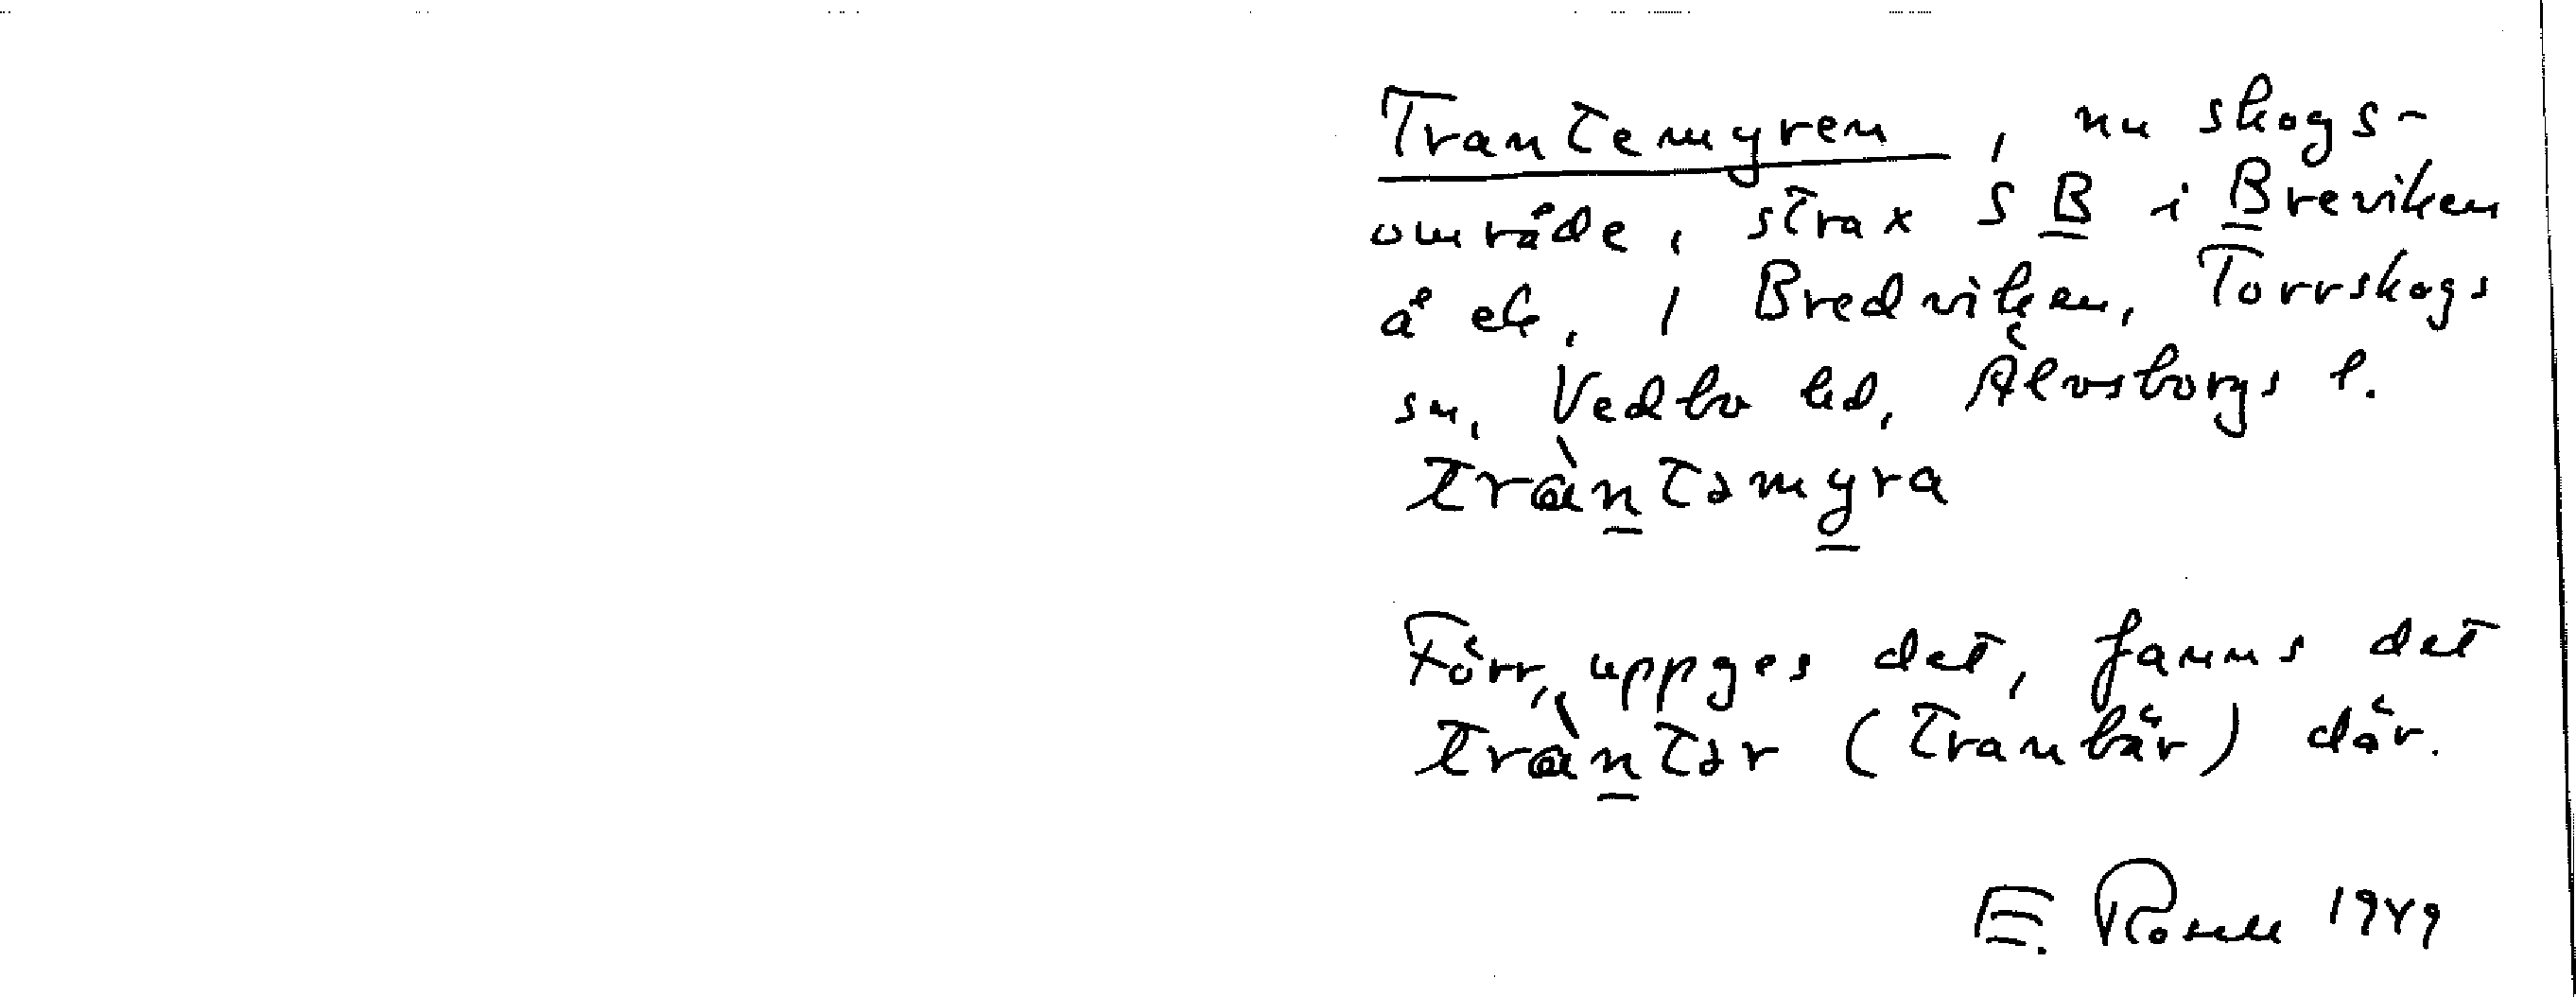 Trantemyren, nu skogs-
område, strax S B i Breviken
å ek. 1 Bredviken, Torrskogs
sn, Vedbo hd, Älvsborgs l.
tràntəmyra
Förr, uppges det, fanns det
tràntər (tranbär) där.
E. Rosell 1949